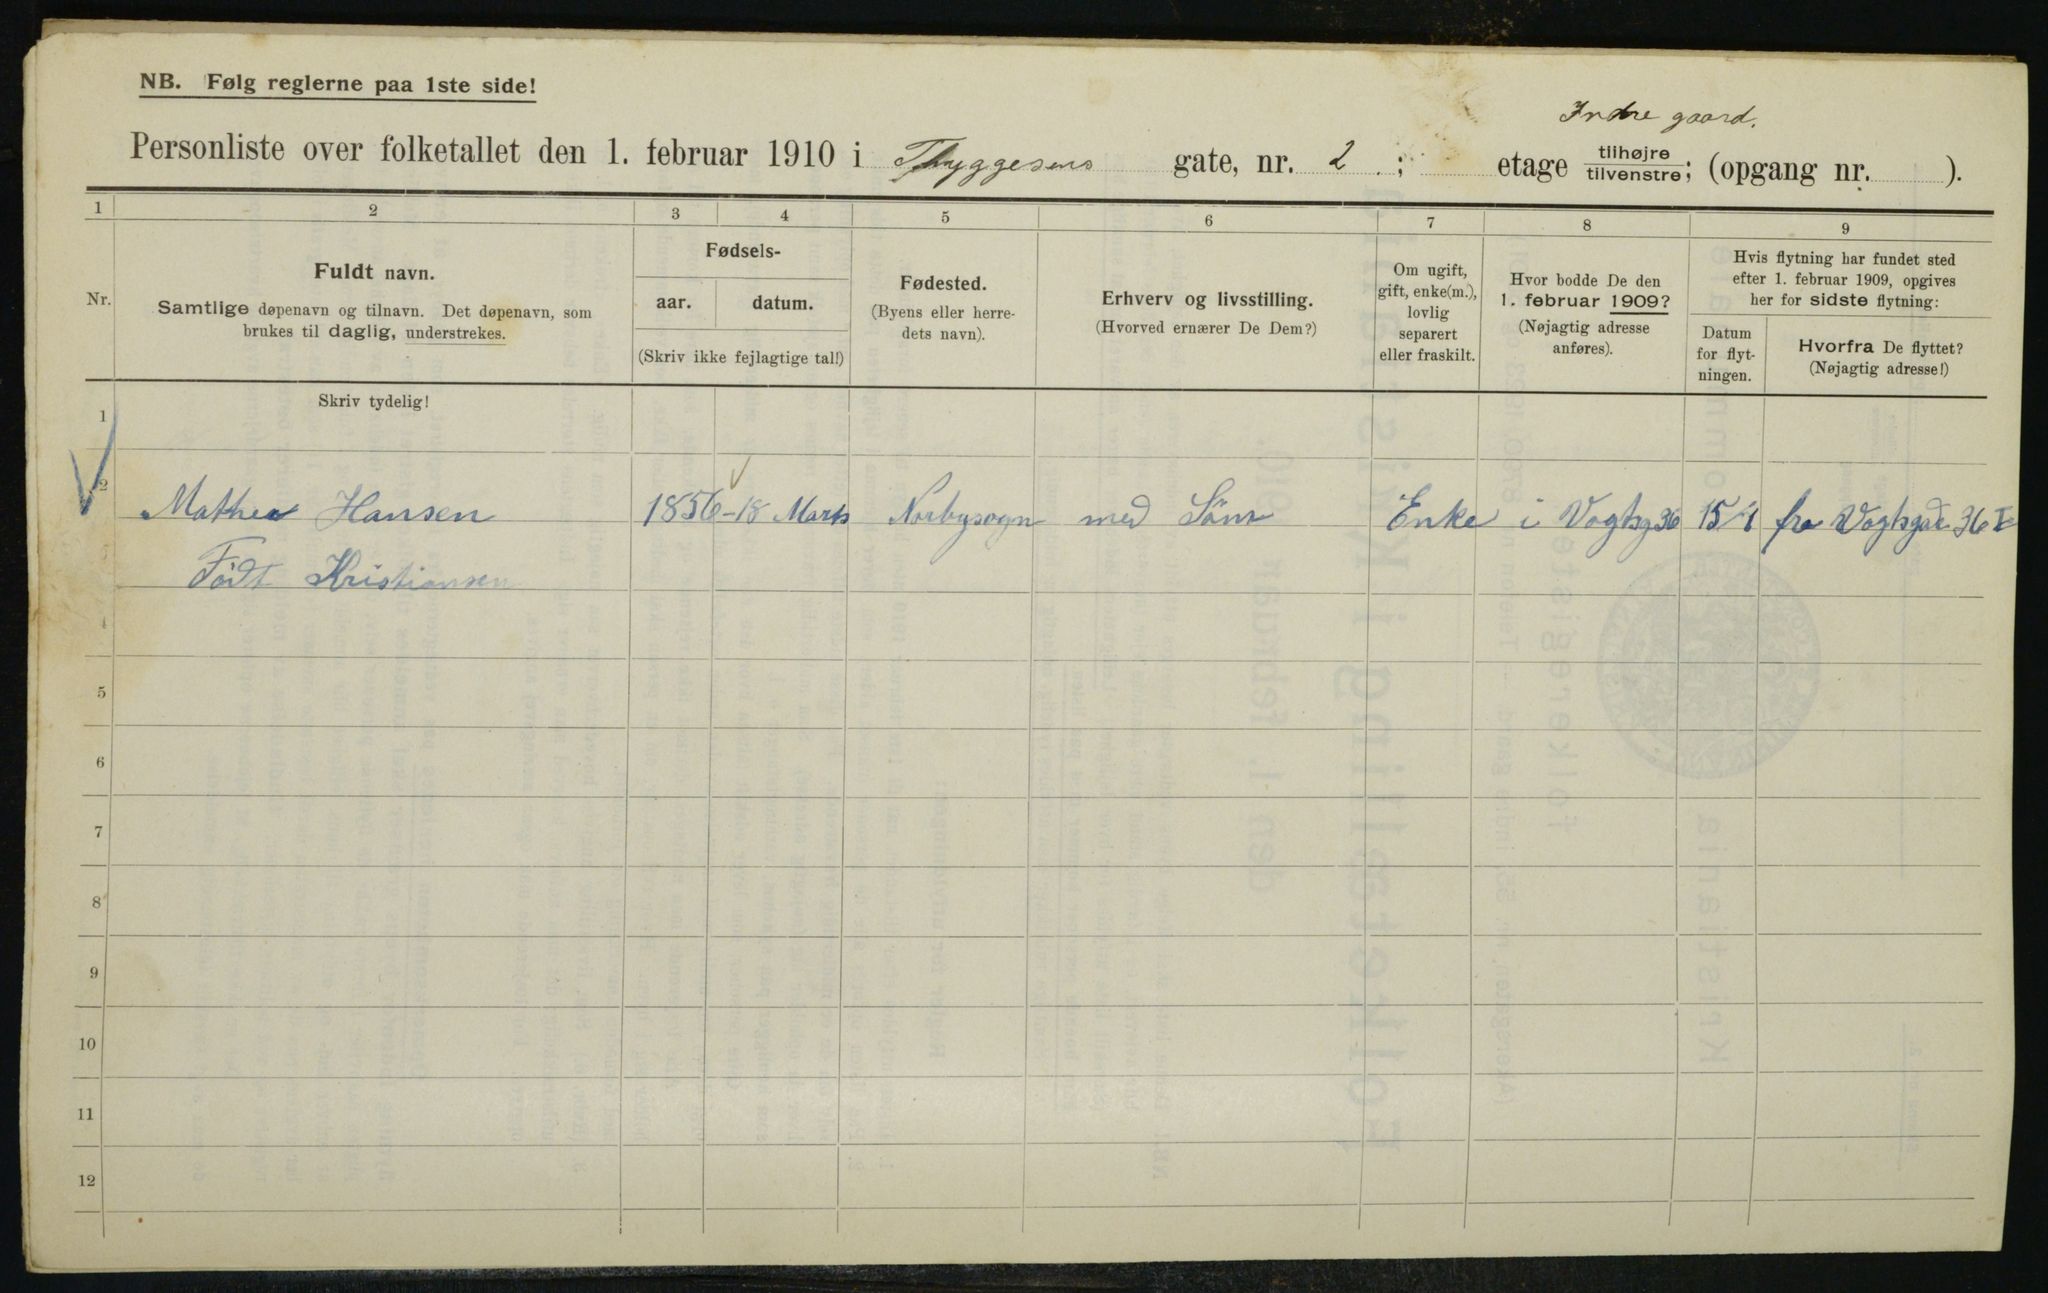 NB. Følg reglerne paa 1ste side!
Indre gaard.
Personliste over folketallet den 1. februar 1910 i Thyggesens gate, nr. 2 ; etage tilhøjre tilvenstre; (opgang nr. ).
1 2 3 4 5 6 7 8 9
Nr.
Fuldt navn.
Samtlige døpenavn og tilnavn. Det døpenavn, som
brukes til daglig, understrekes.
Fødsels-
aar. datum.
(Skriv ikke fejlagtige tal!)
Fødested.
(Byens eller herre-
dets navn).
Erhverv og livsstilling.
(Hvorved ernærer De Dem?)
Om ugift,
gift, enke(m.),
lovlig
separert
eller fraskilt.
Hvor bodde De den
1. februar 1909?
(Nøjagtig adresse
anføres).
Hvis flytning har fundet sted
efter 1. februar 1909, opgives
her for sidste flytning:
Datum
for flyt-
ningen.
Hvorfra De flyttet?
(Nøjagtig adresse!)
Skriv tydelig!
1
2
Mathea Hansen 1856 - 18 Marts Norbysogn med Sömr Enke i Vogtsg 36 15/1 fra Vogtsgade 36 I
Födt Kristiansen
4
5
6
7
8
9
10
11
12